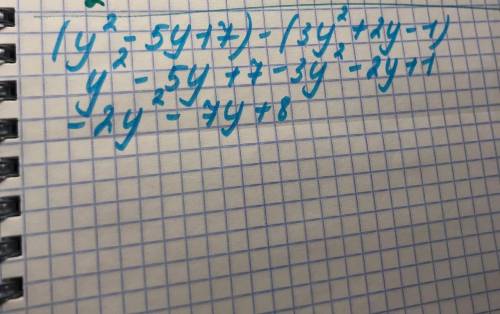 (y² - 5y + 7) - (3y² + 2y - 1)
y² - 5y + 7 - 3y² - 2y + 1
- 2y² - 7y + 8